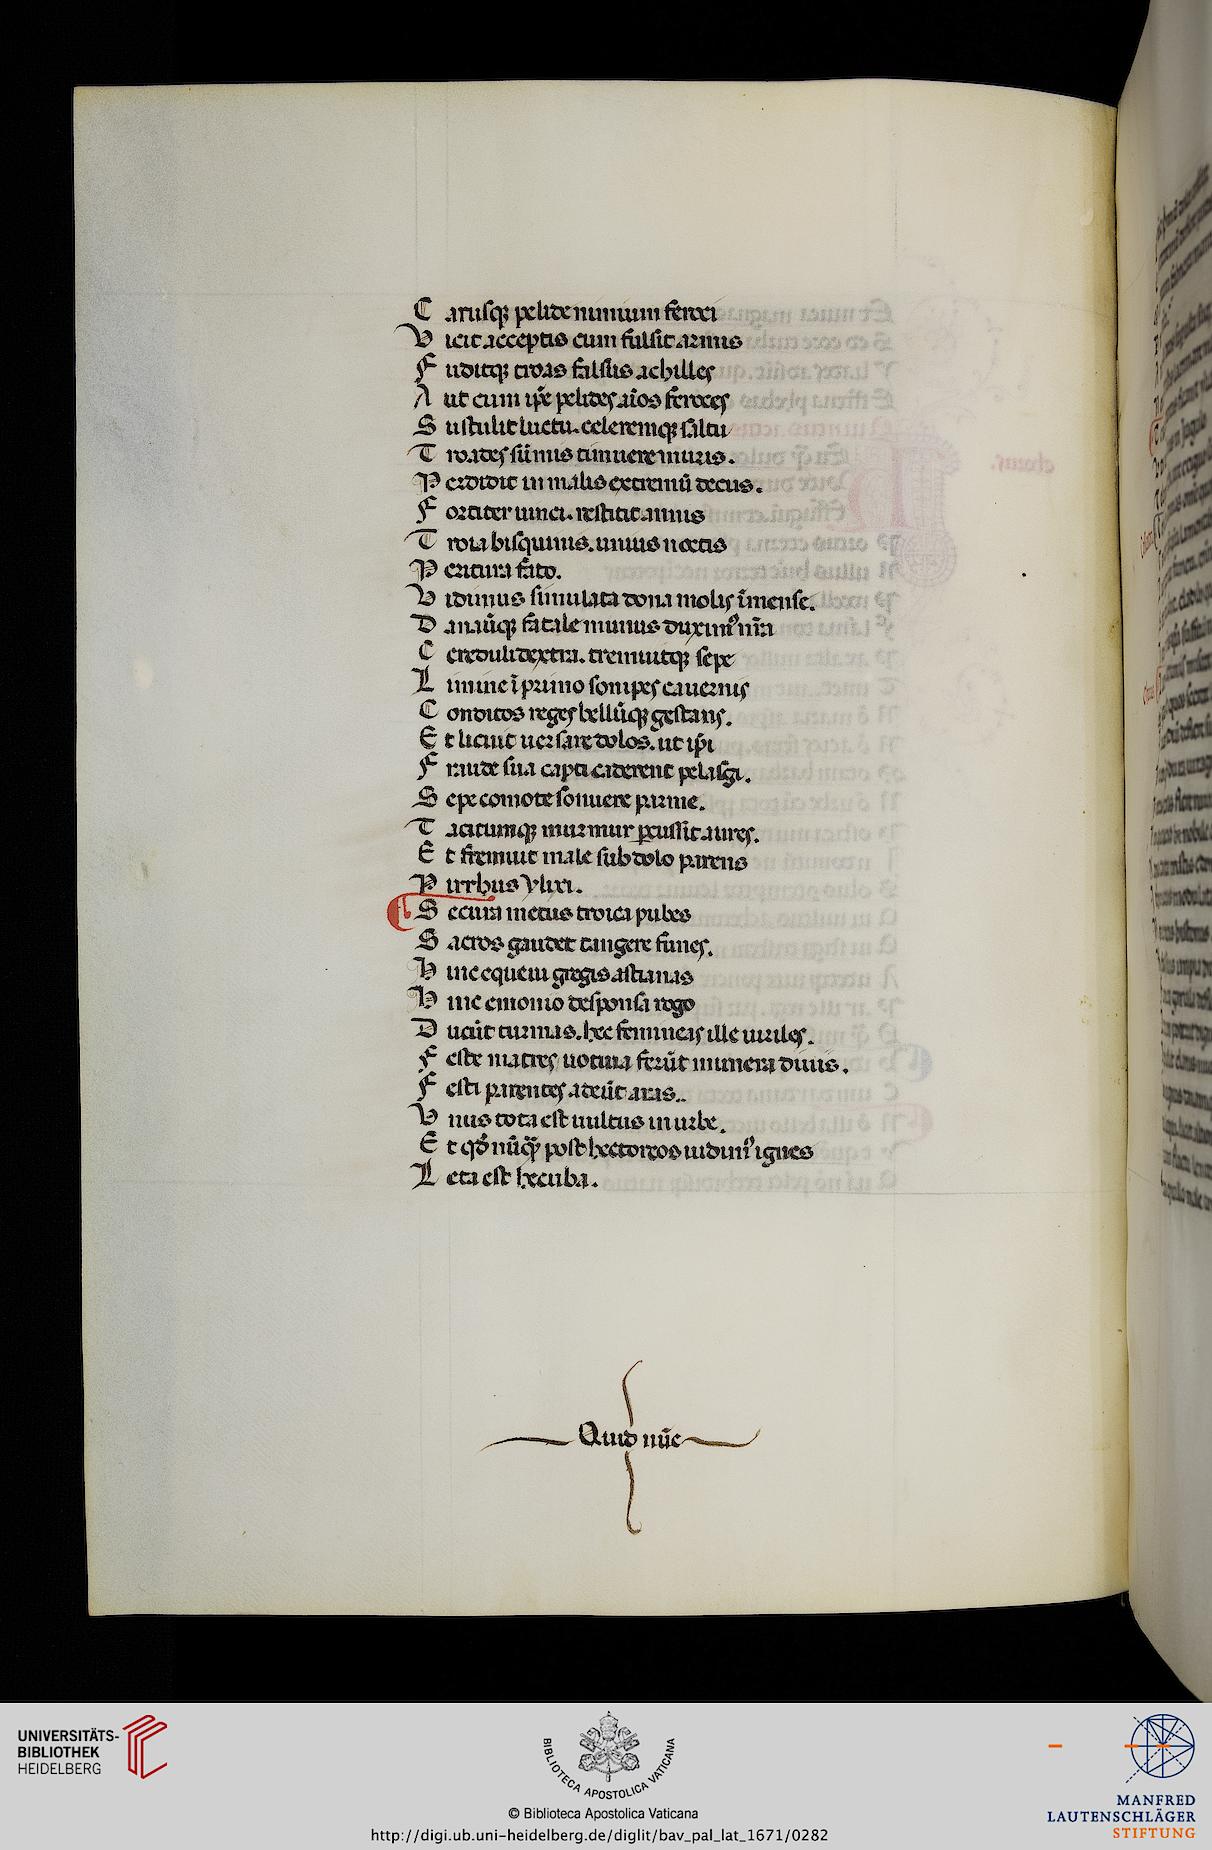 C arusq; pelide nimium feroci
V icit acceptis cum fulsit armis
F uditq; troas falsus achilles
A ut cum ip̄e pelides aīos feroces
S ustulit luctu. celeremq; saltu
T roades sūmis timuere muris.
P erdidit in malis extremū decus.
F ortiter uinci. restitit annis
T roia bisquinis. unius noctis
P eritura fato.
V idimus simulata dona molis īmense.
D anaūq; fatale munus duximꝰ nr̄a
C reduli dextra. tremuitq; sepe
L imine ī primo sonipes cauernis
C onditos reges bellūq; gestans.
E t licuit uersare dolos. ut ip̄i
F raude sua capti caderent pelasgi.
S epe comote sonuere parme.
T acitumq; murmur ꝑcussit aures.
E t fremuit male subdolo parens
P irrhus vlixi.
S ecura metus troica pubes
S acros gaudet tangere funes.
H inc equeui gregis astianas
H inc emonio desponsa rogo
D ucūt turmas. hec femineas ille uiriles.
F este matres uotiua ferūt munera diuis.
F esti parentes adeūt aras..
V nus tota est uultus in urbe.
E t qđ nūq̄ post hectoreos uidimꝰ ignes
L eta est hecuba.
chorus.
Quid nūc
UNIVERSITÄTS-
BIBLIOTHEK
HEIDELBERG
BIBLIOTECA APOSTOLICA VATICANA
© Biblioteca Apostolica Vaticana
http://digi.ub.uni-heidelberg.de/diglit/bav_pal_lat_1671/0282
MANFRED
LAUTENSCHLÄGER
STIFTUNG